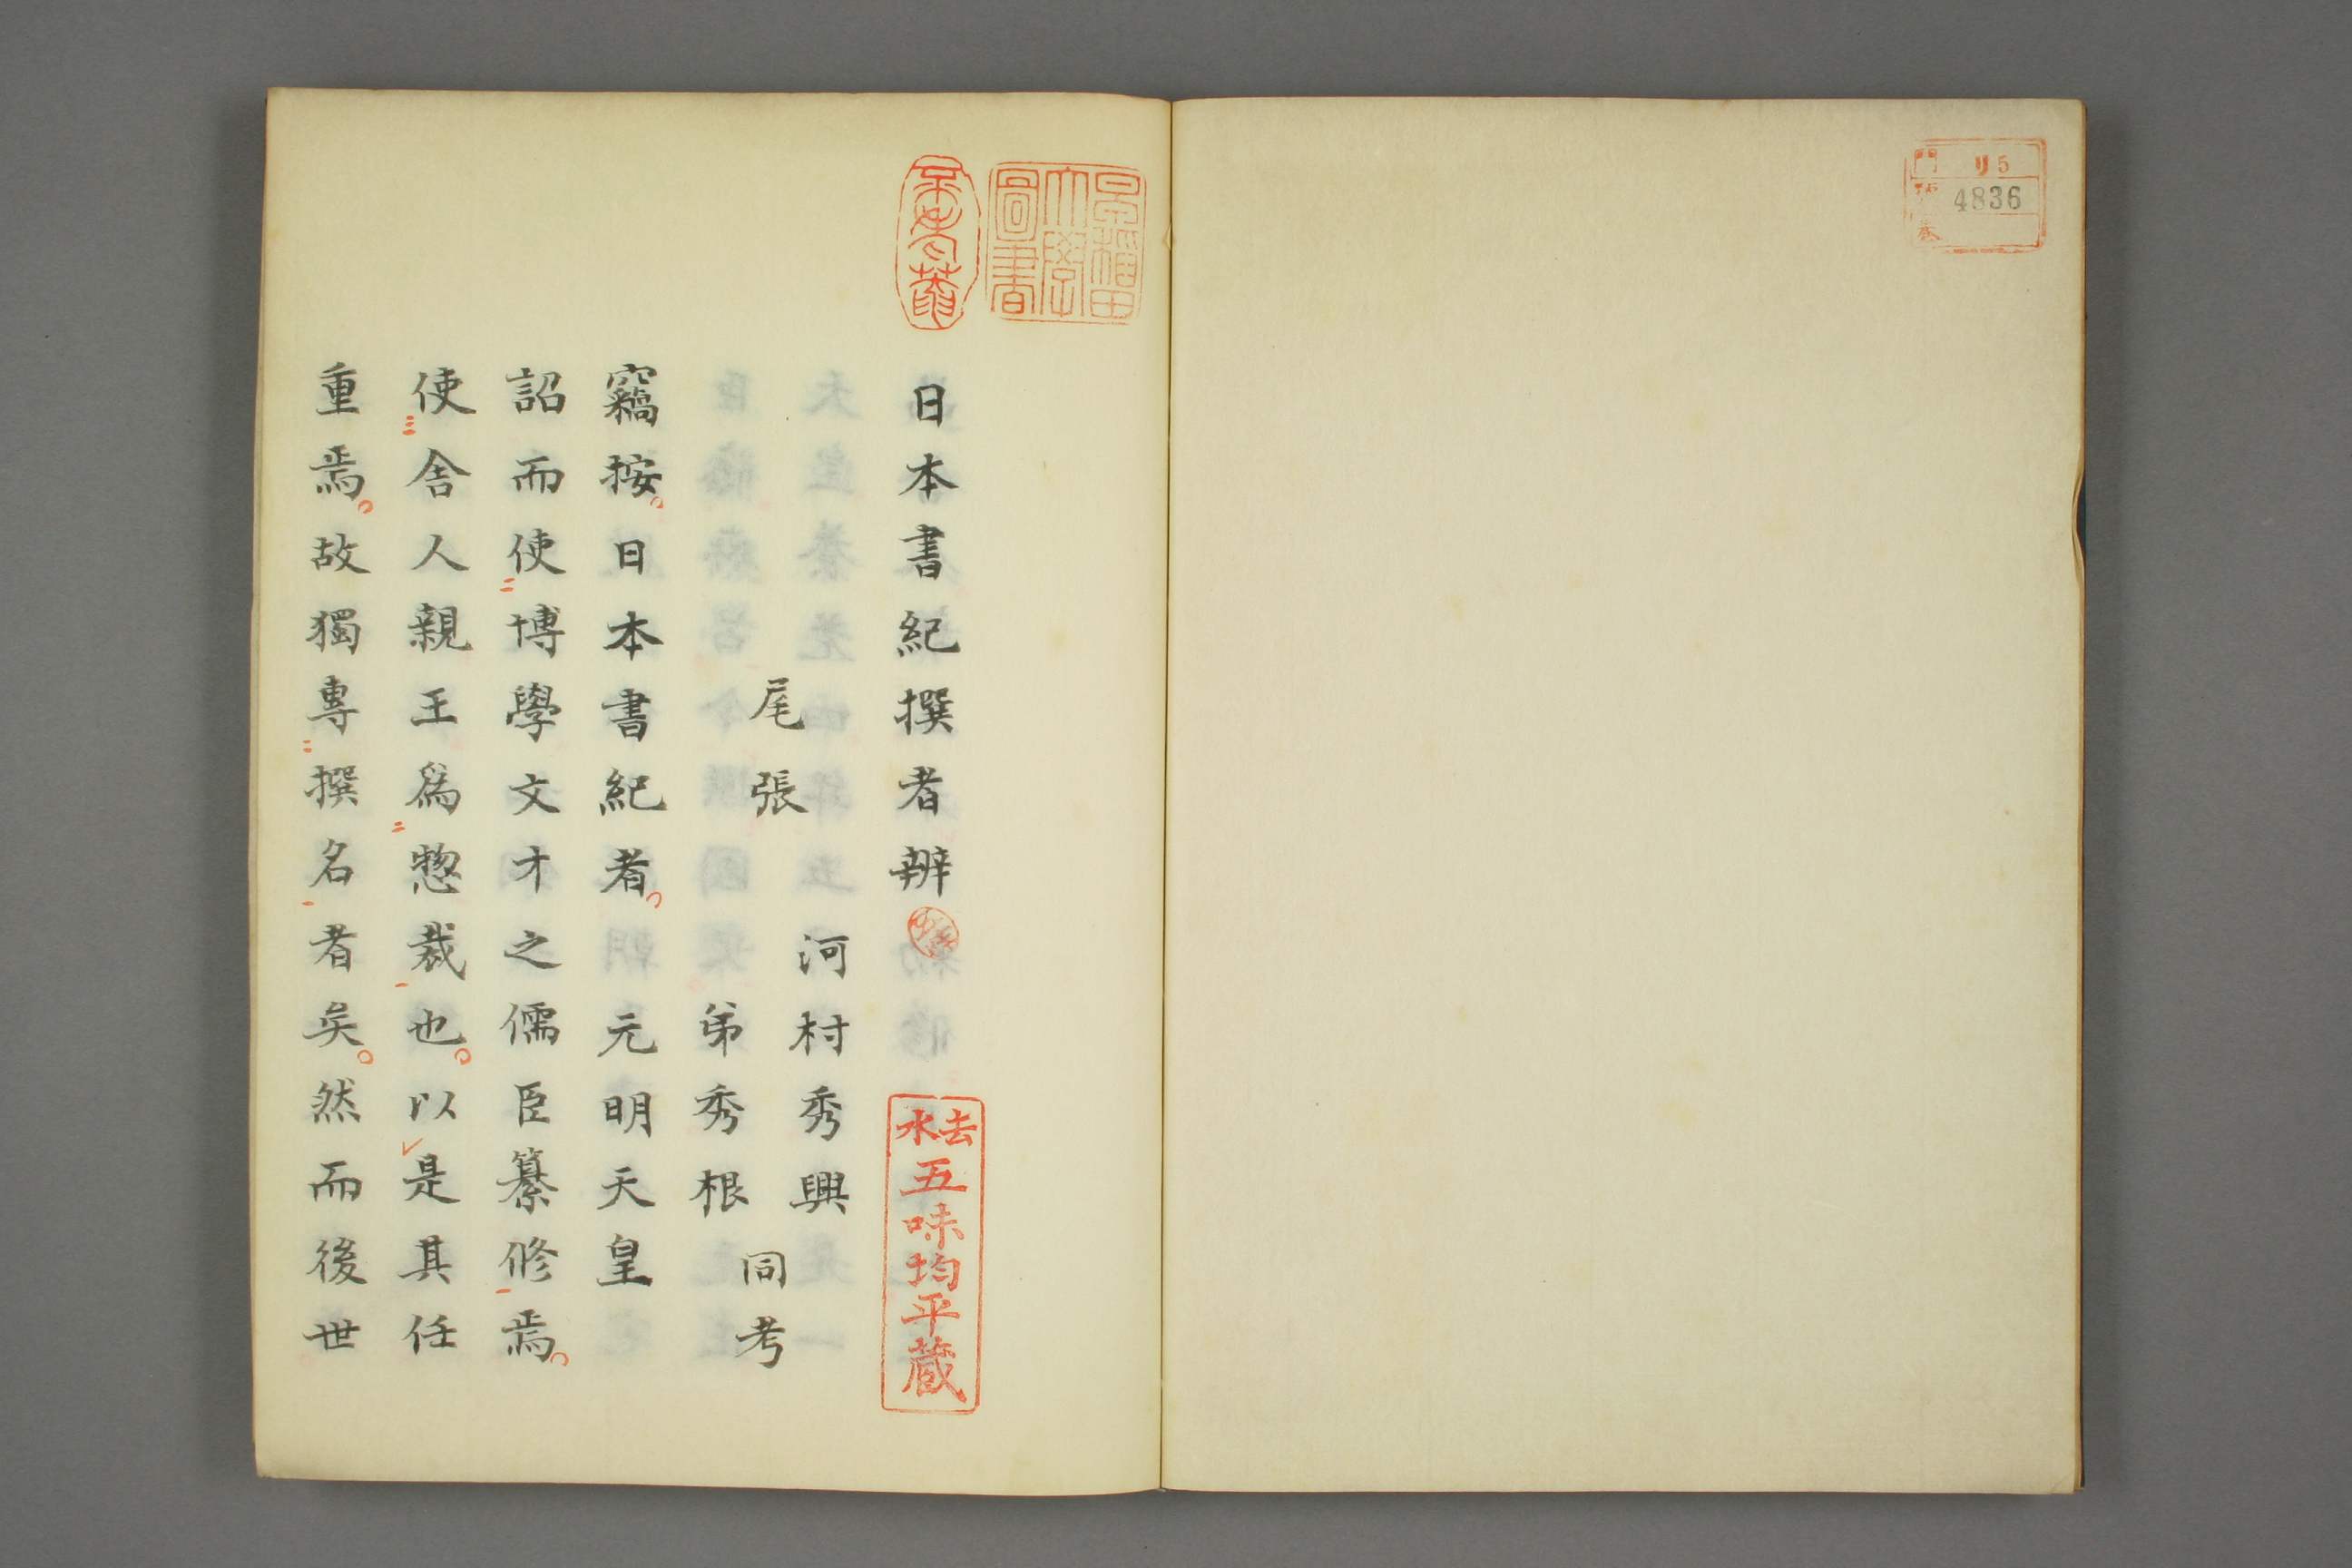 門 リ5
號 4836
卷
早稲田
大學
圖書
日本書紀撰者辨
去水
五味均平蔵
尾張
河村秀興
弟秀根
同考
竊按。日本書紀者。元明天皇
詔而使二博學文才之儒臣纂修一焉。
使三舎人親王爲二惣裁一也。以是其任
重焉。故獨專二撰名一者矣。然而後世